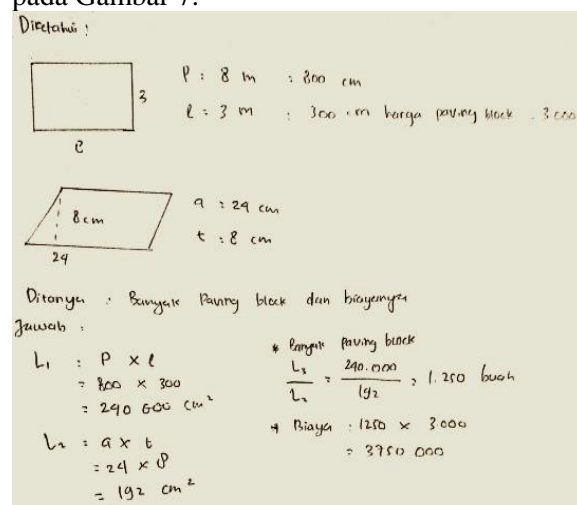 pada Gambar 7.
Diketahui :
3
8
P : 8 m : 800 cm
l : 3 m : 300 cm harga paving block . 3 000
8 cm
24
a : 24 cm
t : 8 cm
Ditanya : Banyak Paving block dan biayanya
Jawab :
L1 : P x l
= 800 x 300
= 240 000 cm²
L2 = a x t
= 24 x 8
= 192 cm²
* Banyak paving block
L1 / L2 = 240.000 / 192 = 1.250 buah
* Biaya : 1250 x 3.000
= 3750 000